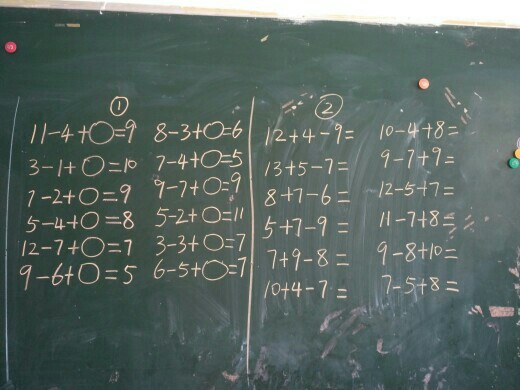 ①
11-4+○=9
3-1+○=10
7-2+○=9
5-4+○=8
12-7+○=7
9-6+○=5
8-3+○=6
7-4+○=5
9-7+○=9
5-2+○=11
3-3+○=7
6-5+○=7
②
12+4-9=
13+5-7=
8+7-6=
5+7-9=
7+9-8=
10+4-7=
10-4+8=
9-7+9=
12-5+7=
11-7+8=
9-8+10=
7-5+8=